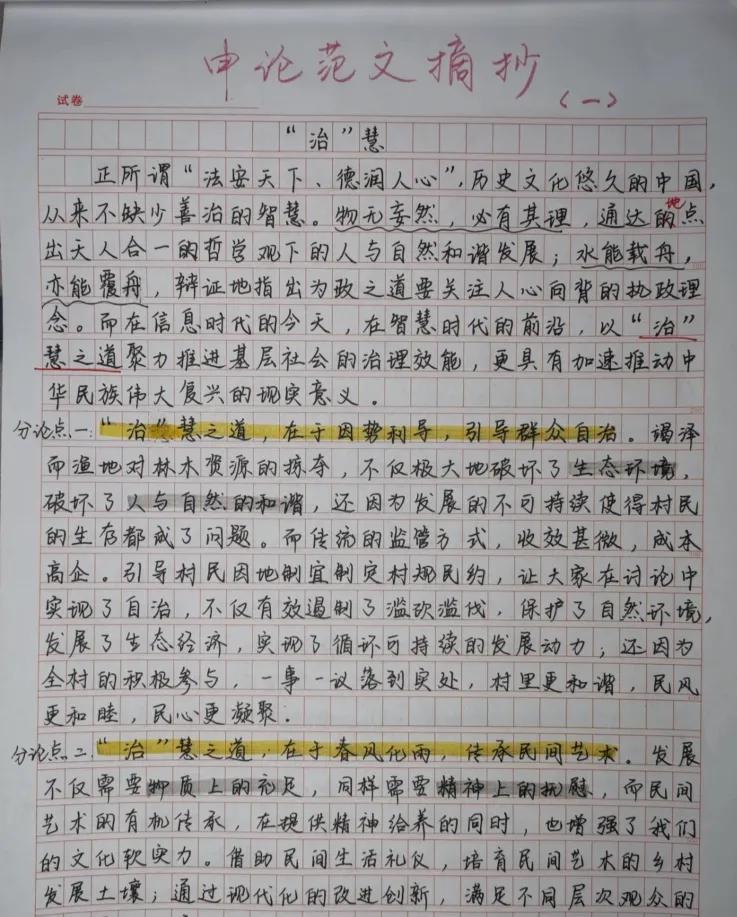 申论范文摘抄
(一)
试卷
“治”慧
正所谓“法安天下、德润人心”,历史文化悠久的中国,
从来不缺少善治的智慧。物无妄然,必有其理,通达的地点
出天人合一的哲学观下的人与自然和谐发展;水能载舟,
亦能覆舟,辩证地指出为政之道要关注人心向背的执政理
念。而在信息时代的今天,在智慧时代的前沿,以“治”
慧之道聚力推进基层社会的治理效能,更具有加速推动中
华民族伟大复兴的现实意义。
分论点一:“治”慧之道,在于因势利导,引导群众自治。竭泽
而渔地对林木资源的掠夺,不仅极大地破坏了生态环境,
破坏了人与自然的和谐,还因为发展的不可持续使得村民
的生存都成了问题。而传统的监管方式,收效甚微,成本
高企。引导村民因地制宜制定村规民约,让大家在讨论中
实现了自治,不仅有效遏制了滥砍滥伐,保护了自然环境,
发展了生态经济,实现了循环可持续的发展动力;还因为
全村的积极参与,一事一议落到实处,村里更和谐,民风
更和睦,民心更凝聚.
分论点二:“治”慧之道,在于春风化雨,传承民间艺术。发展
不仅需要物质上的充足,同样需要精神上的抚慰,而民间
艺术的有机传承,在提供精神给养的同时,也增强了我们
的文化软实力。借助民间生活礼仪,培育民间艺术的乡村
发展土壤;通过现代化的改进创新,满足不同层次观众的